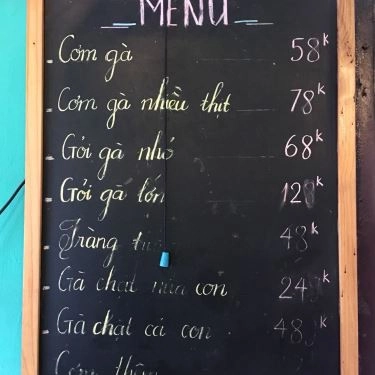 MENU
Cơm gà 58k
Cơm gà nhiều thịt 78k
Gỏi gà nhỏ 68k
Gỏi gà lớn 128k
Tràng 48k
Gà chặt nửa con 24 k
Gà chặt cả con 48 k
Cơm thêm